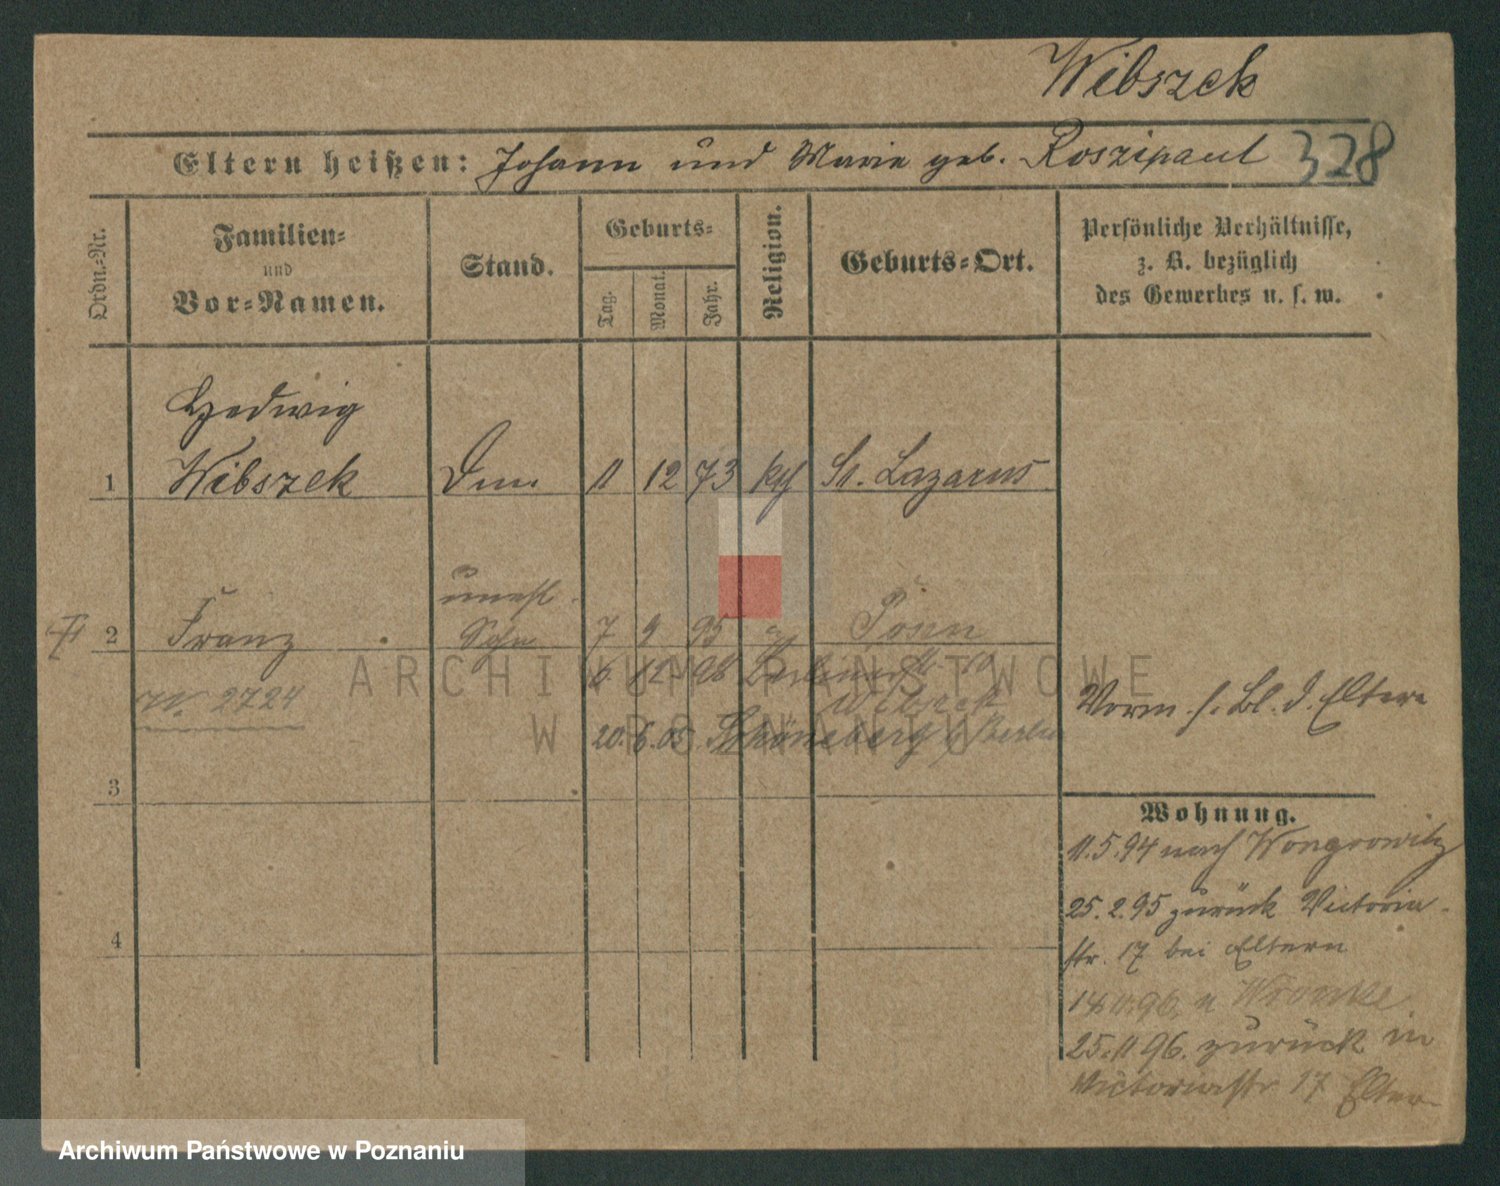 Wibszek
Eltern heißen: Johann und Marie geb. Roszipaul 328
Ordn.-Nr.
Familien-
und
Vor-Namen.
Stand.
Geburts-
Tag.
Monat.
Jahr.
Religion.
Geburts-Ort.
Persönliche Verhältnisse,
z. B. bezüglich
des Gewerbes u. s. w.
Hedwig
1 Wibszek 11 12 73 kth St. Lazarus
unehl.
2 Franz Sohn 7 9 95 Posen
2724
6. 12. 98
Wibszek
20. 6. 05 Schöneberg b/Berlin
Vorm. s. Bl. d. Eltern
3
4
Wohnung.
11.5.94 nach Wongrowitz
25.2.95 zurück Victoria-
str. 17 bei Eltern
96. n Wronke
25.11 96. zurück in
Victoriastr 17 Elter
ARCHIWUM PAŃSTWOWE
W POZNANIU
Archiwum Państwowe w Poznaniu